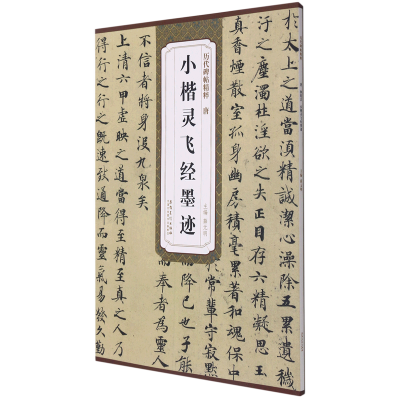 於太上之道當須精誠潔心澡除五累遺穢
汙之塵濁杜淫欲之失目存六精凝思玉
真香煙散室孤身幽房積毫累著和魂保中
於常輩守寂默
而降已也
者將身沒九泉矣
上清六甲虛映之道當得至精至真之人乃
得行之行之既速致通降而靈氣易發久勤
历代碑帖精粹 唐
小楷灵飞经墨迹
主编